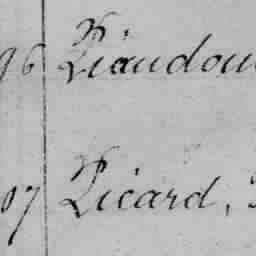 96 Piaudou
07 Picard,